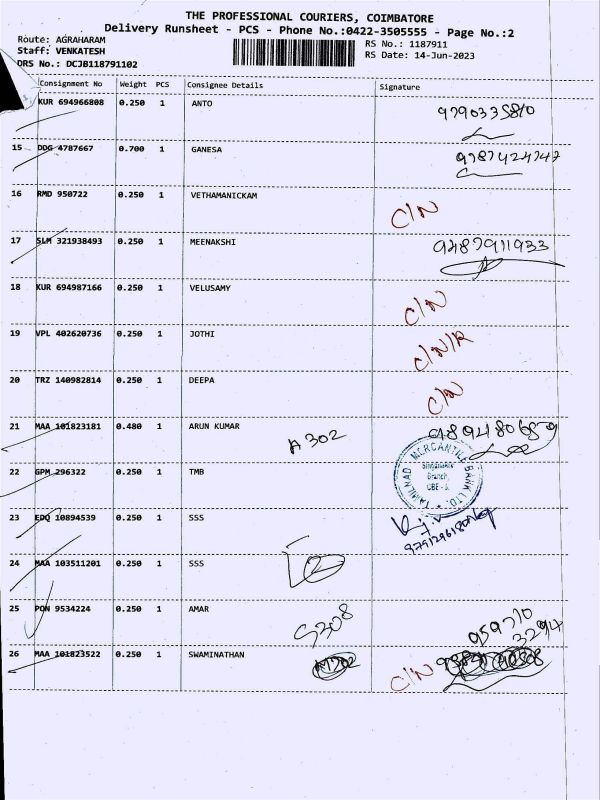 THE PROFESSIONAL COURIERS, COIMBATORE
Delivery Runsheet - PCS - Phone No.:0422-3505555 - Page No.:2
Route: AGRAHARAM
Staff: VENKATESH
DRS No.: DCJB118791102
RS No.: 1187911
RS Date: 14-Jun-2023
Consignment No Weight PCS Consignee Details Signature
KUR 694966808 0.250 1 ANTO
15 DDG 4787667 0.700 1 GANESA 9787424747
16 RMD 950722 0.250 1 VETHAMANICKAM C/N
17 SLM 321938493 0.250 1 MEENAKSHI 9487911933
18 KUR 694987166 0.250 1 VELUSAMY C/N
19 VPL 402620736 0.250 1 JOTHI C/N/R
20 TRZ 140982814 0.250 1 DEEPA C/N
21 MAA 101823181 0.480 1 ARUN KUMAR A302
22 GPM 296322 0.250 1 TMB
TAMILNAD MERCANTILE BANK LTD.
Singanallur
Branch,
CBE - 5
23 EDQ 10894539 0.250 1 SSS
24 MAA 103511201 0.250 1 SSS
25 PON 9534224 0.250 1 AMAR S308 959710
3294
26 MAA 101823522 0.250 1 SWAMINATHAN C/N